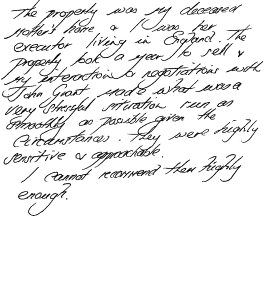 The property was my deceased
mother's home & I was her
executor living in England. The
property took a year to sell &
my interactions & negotiations with
John Grant made what was a
very stressful situation run as
smoothly as possible given the
circumstances. They were highly
sensitive & approachable.
I cannot recommend them highly
enough.